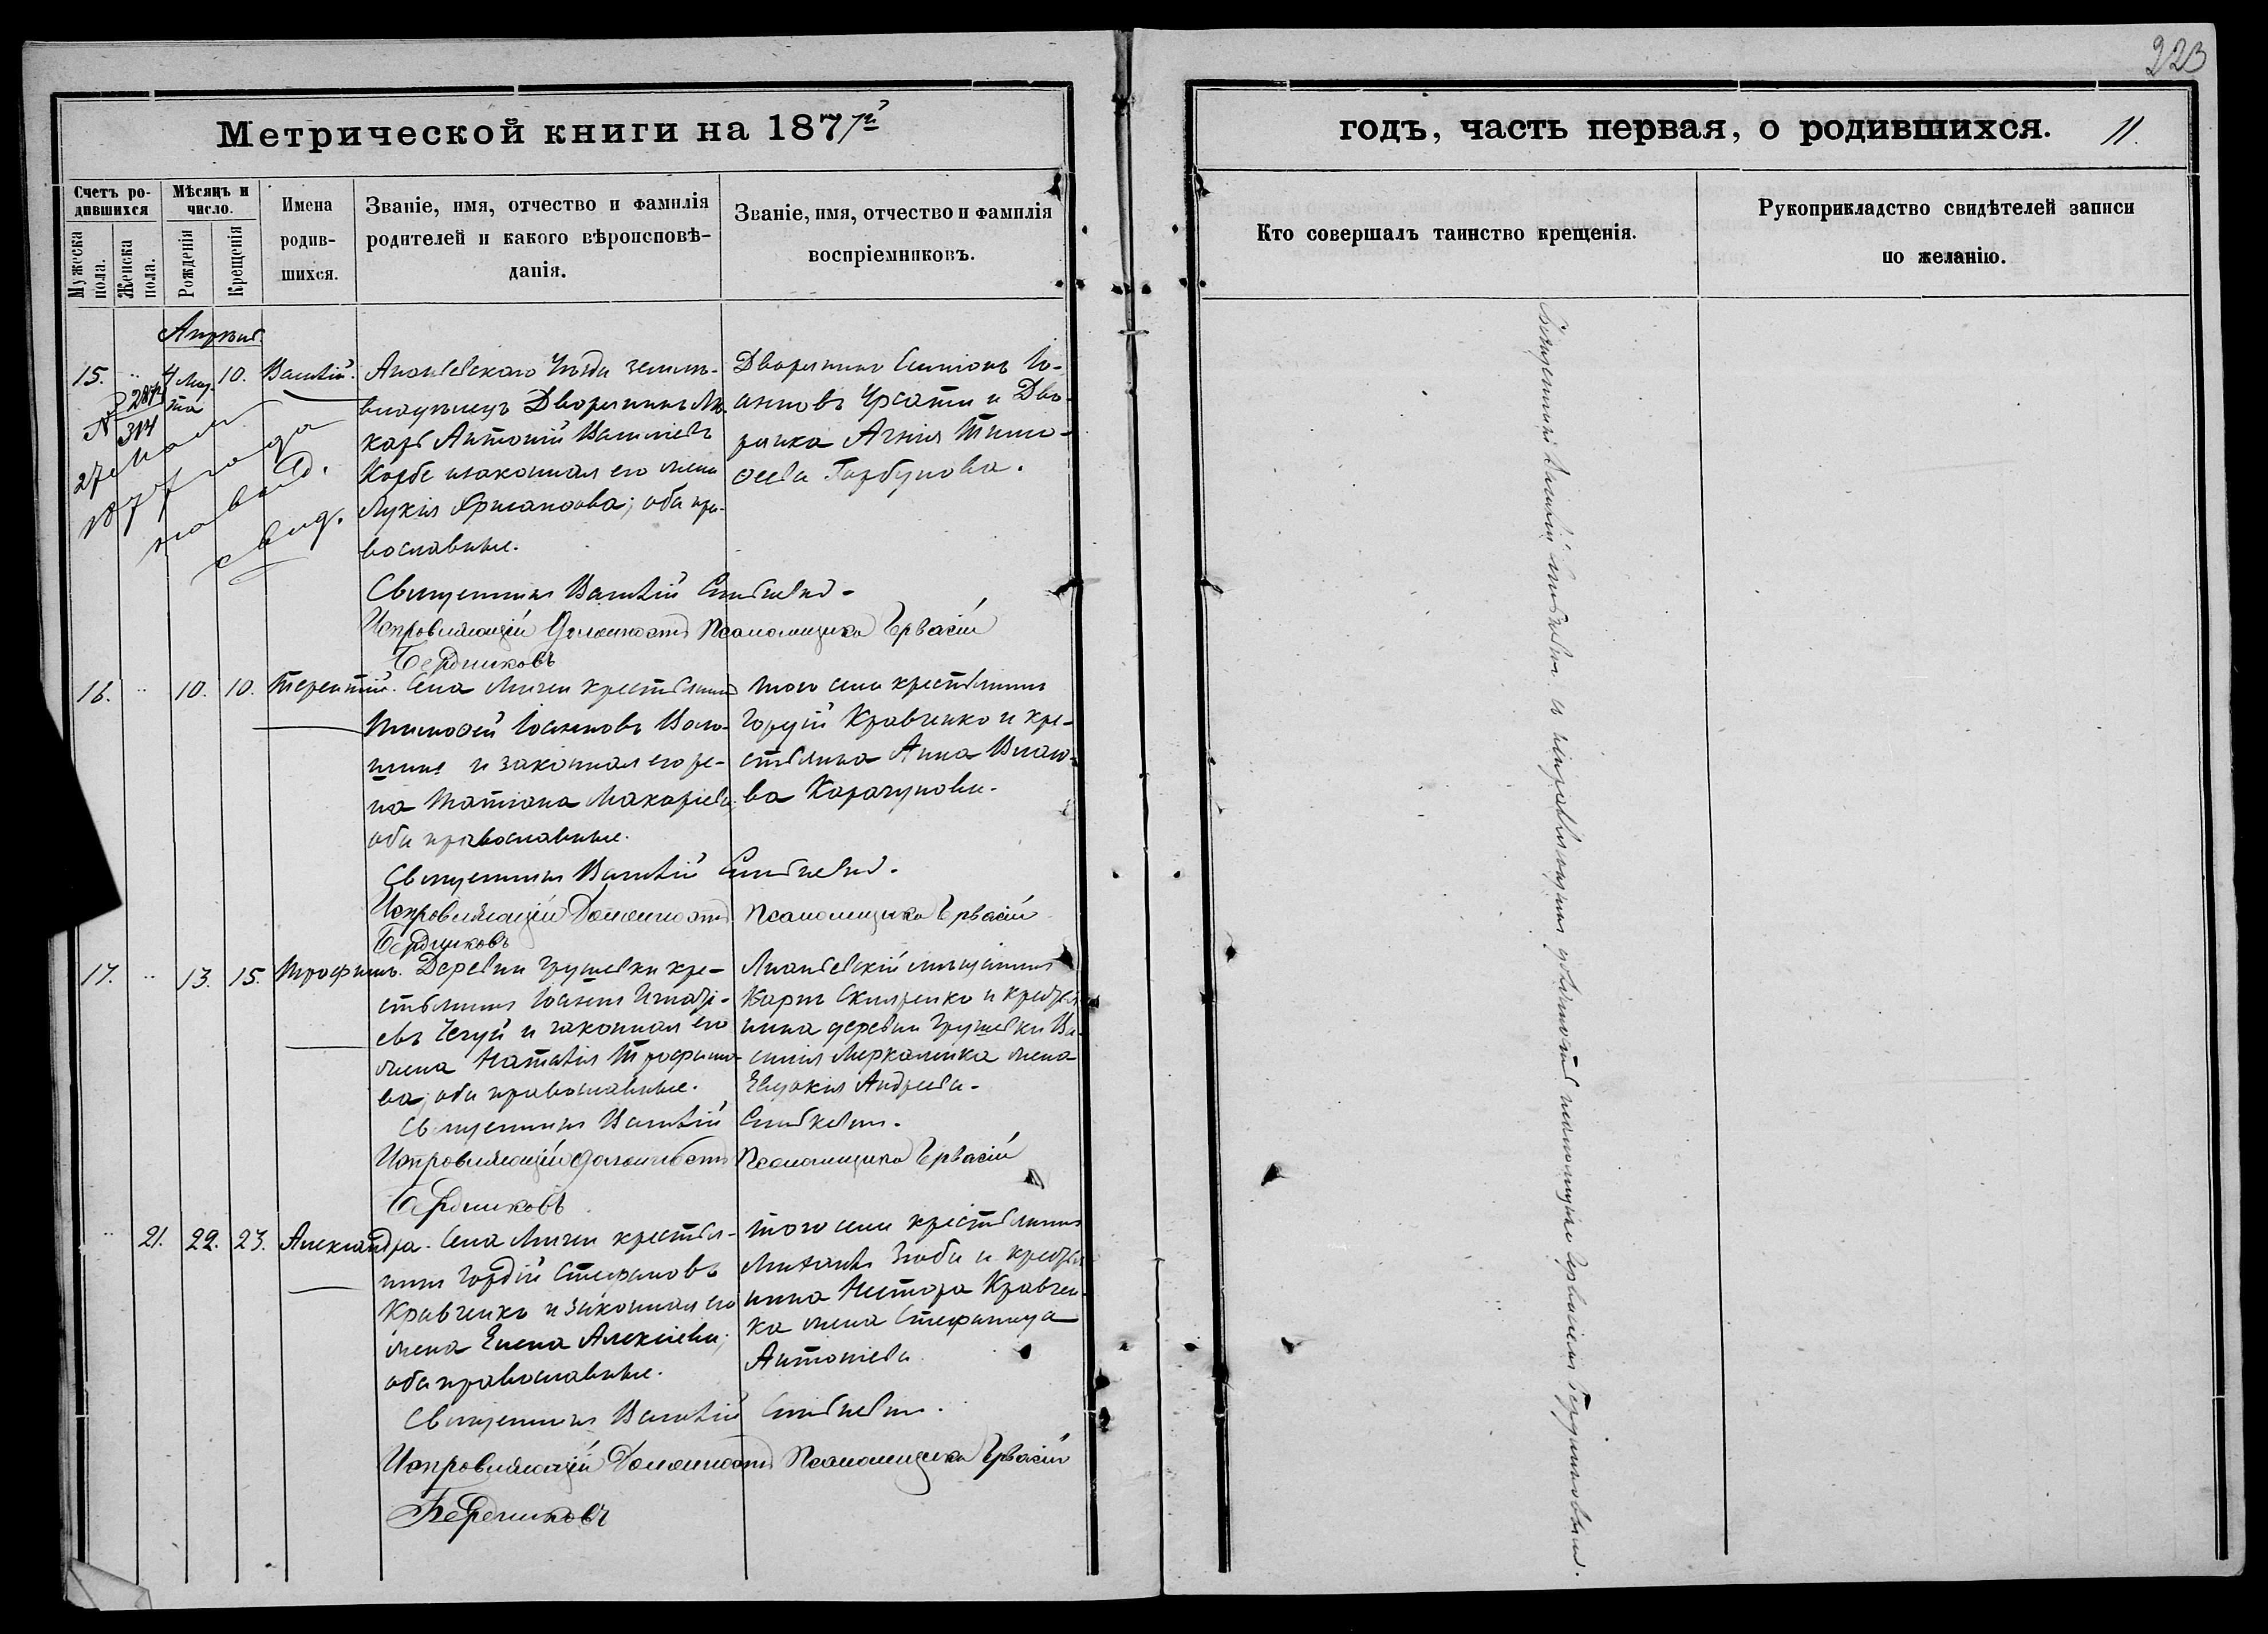 223
Метрической книги на 1877й
годъ, часть первая, о родившихся. 11.
Счетъ родившихся
Мужеска пола.
Женска пола.
Мѣсяцъ и число.
Рожденія
Крещенія
Имена родившихся.
Званіе, имя, отчество и фамилія
родителей и какого вѣроисповѣ-
данія.
Званіе, имя, отчество и фамилія
воспріемниковъ.
Кто совершалъ таинство крещенія.
Рукоприкладство свидѣтелей записи
по желанію.
Апрѣль
15. 4 Мар- 10. Василій.
та
№ 314
27 Мая
выд.
свид.
Ананьевскаго Уѣзда земле-
владѣлецъ Дворянинъ Ма-
карь Антоній Васильевъ
Корбе и законная его жена
Лукія; оба пра-
вославные.
Дворянинъ Симіонъ Іо-
анновъ и Дво-
рянка Агнія Тимо-
ѳеева Горбунова.
Священникъ Василій
Исправляющій Должность Псаломщика Ервасій
Бердниковъ
16. 10. 10. Терентій.
Села крестьянинъ
Тимоѳей Іоанновъ Воло-
шинъ и законная его же-
на Татіана Макаріева;
оба православные.
того села крестьянинъ
Гордій Кравченко и кре-
стьянка Анна Власо-
ва Карачунова.
Священникъ Василій
Исправляющій Должность Псаломщика Ервасій
Бердниковъ
17. 13. 15. Трофимъ.
Деревни Грушевки кре-
стьянинъ Іоаннъ Игнаті-
евъ и законная его
жена Наталія Трофимо-
ва; оба православные.
Ананьевскій мещанинъ
Карпъ Скляренко и крестья-
нина деревни Грушевки Ва-
силія жена
Евдокія Андреева.
Священникъ Василій
Исправляющій должность Псаломщика Ервасій
Бердниковъ
21. 22. 23. Александра.
Села крестья-
нинъ Гордій Стефановъ
Кравченко и законная его
жена Елена Алексіева;
оба православные.
того села крестьянинъ
Михаилъ Зюба и крестья-
нина Нестора Кравчен-
ка жена Стефанида
Антоніева
Священникъ Василій
Исправляющій Должность Псаломщика Ервасій
Бердниковъ
Священникъ Василій съ исправляющимъ должность псаломщика Ервасіемъ Бердниковымъ.